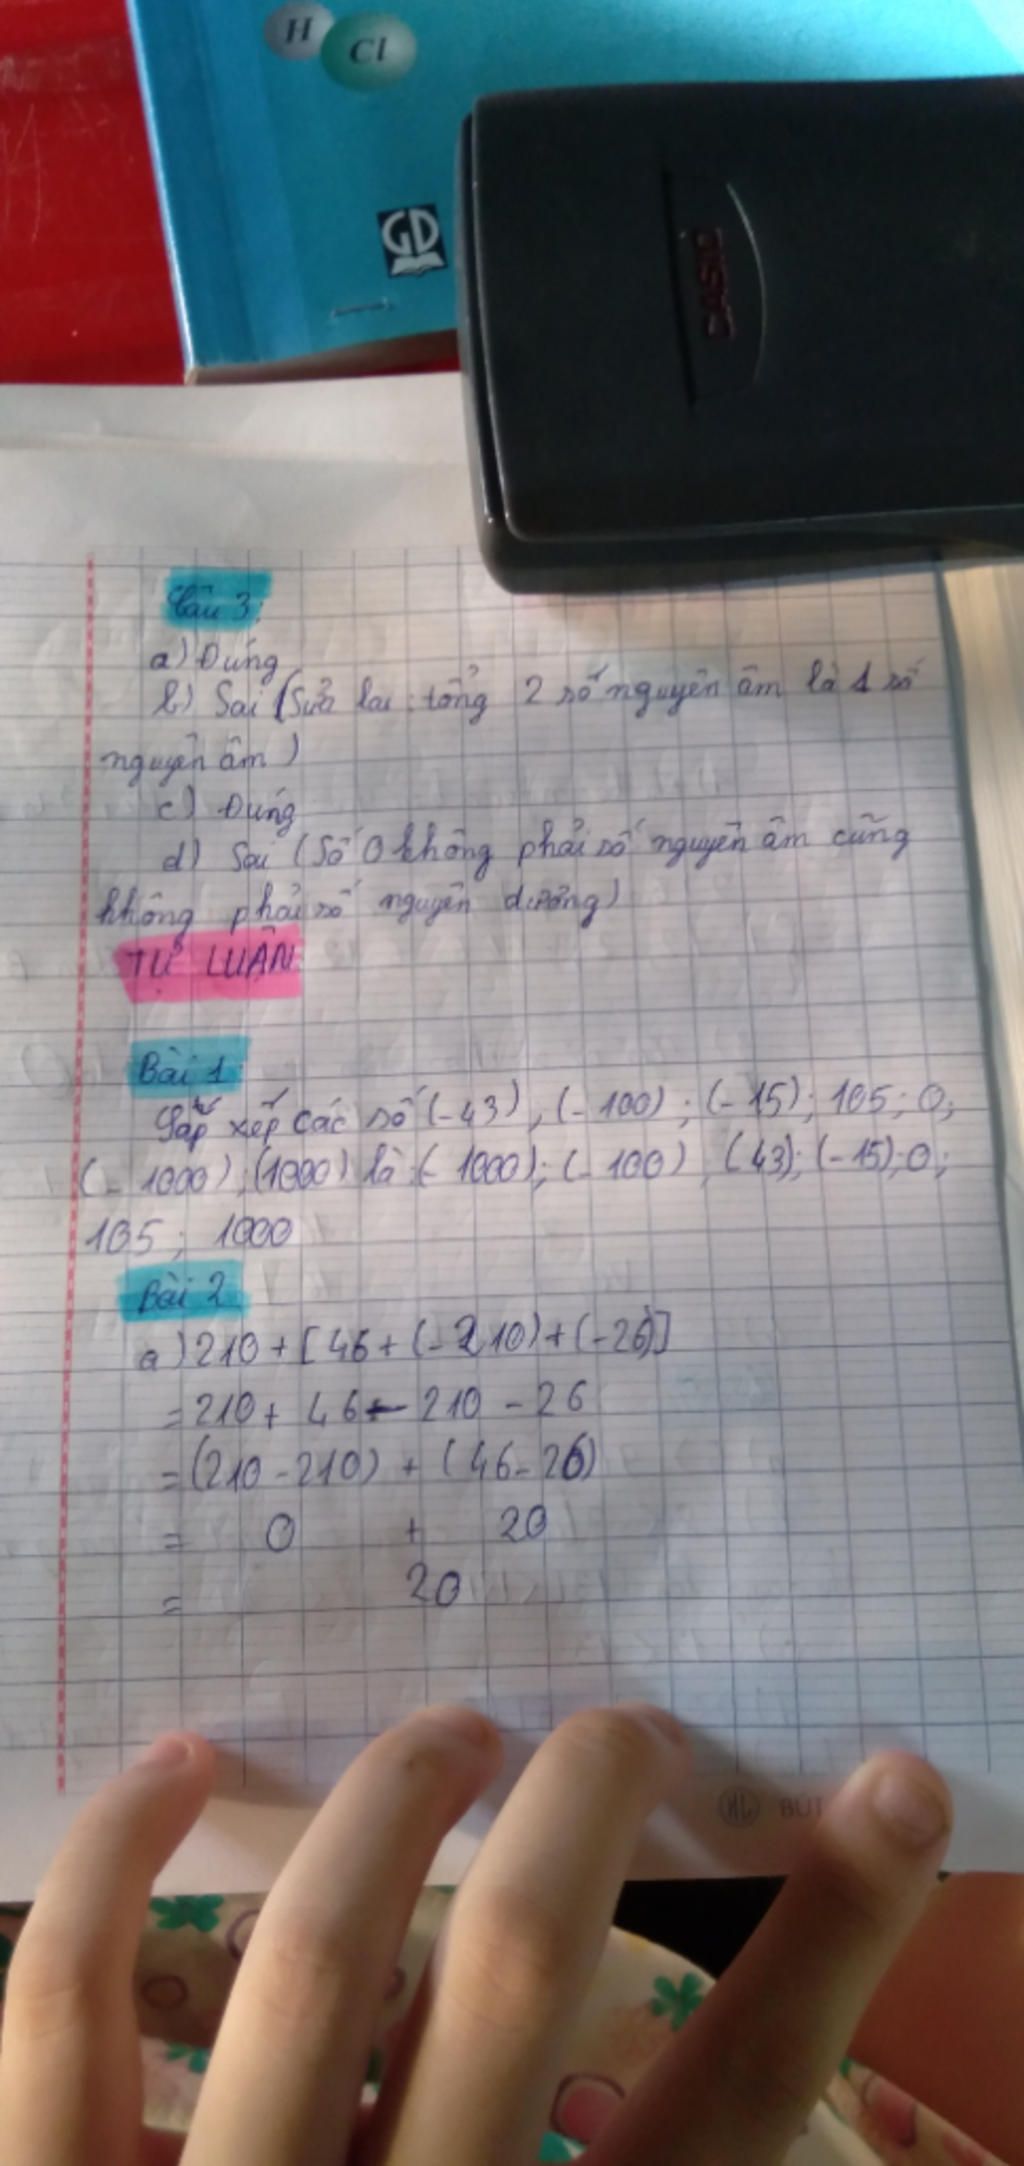 H
Cl
GD
CASIO
Câu 3:
a) Đúng
b) Sai (Sửa lại: tổng 2 số nguyên âm là 1 số
nguyên âm)
c) Đúng
d) Sai (Số 0 không phải số nguyên âm cũng
không phải số nguyên dương)
TỰ LUẬN
Bài 1
Sắp xếp các số (-43), (-100); (-15); 105; 0;
(-1000); (1000) là (-1000); (-100), (43); (-15); 0;
105; 1000
Bài 2
a) 210 + [46 + (-210) + (-26)]
= 210 + 46 - 210 - 26
= (210 - 210) + (46 - 26)
= 0 + 20
= 20
KL BÚT